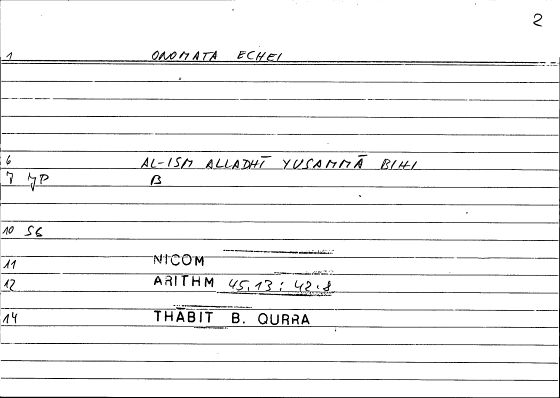 2
1 ONOMATA ECHEI
6 AL-ISM ALLADHĪ YUSAMMĀ BIHI
7 JP B
10 SG
11 NICOM
12 ARITHM 45,13; 42.8
14 THABIT B. QURRA